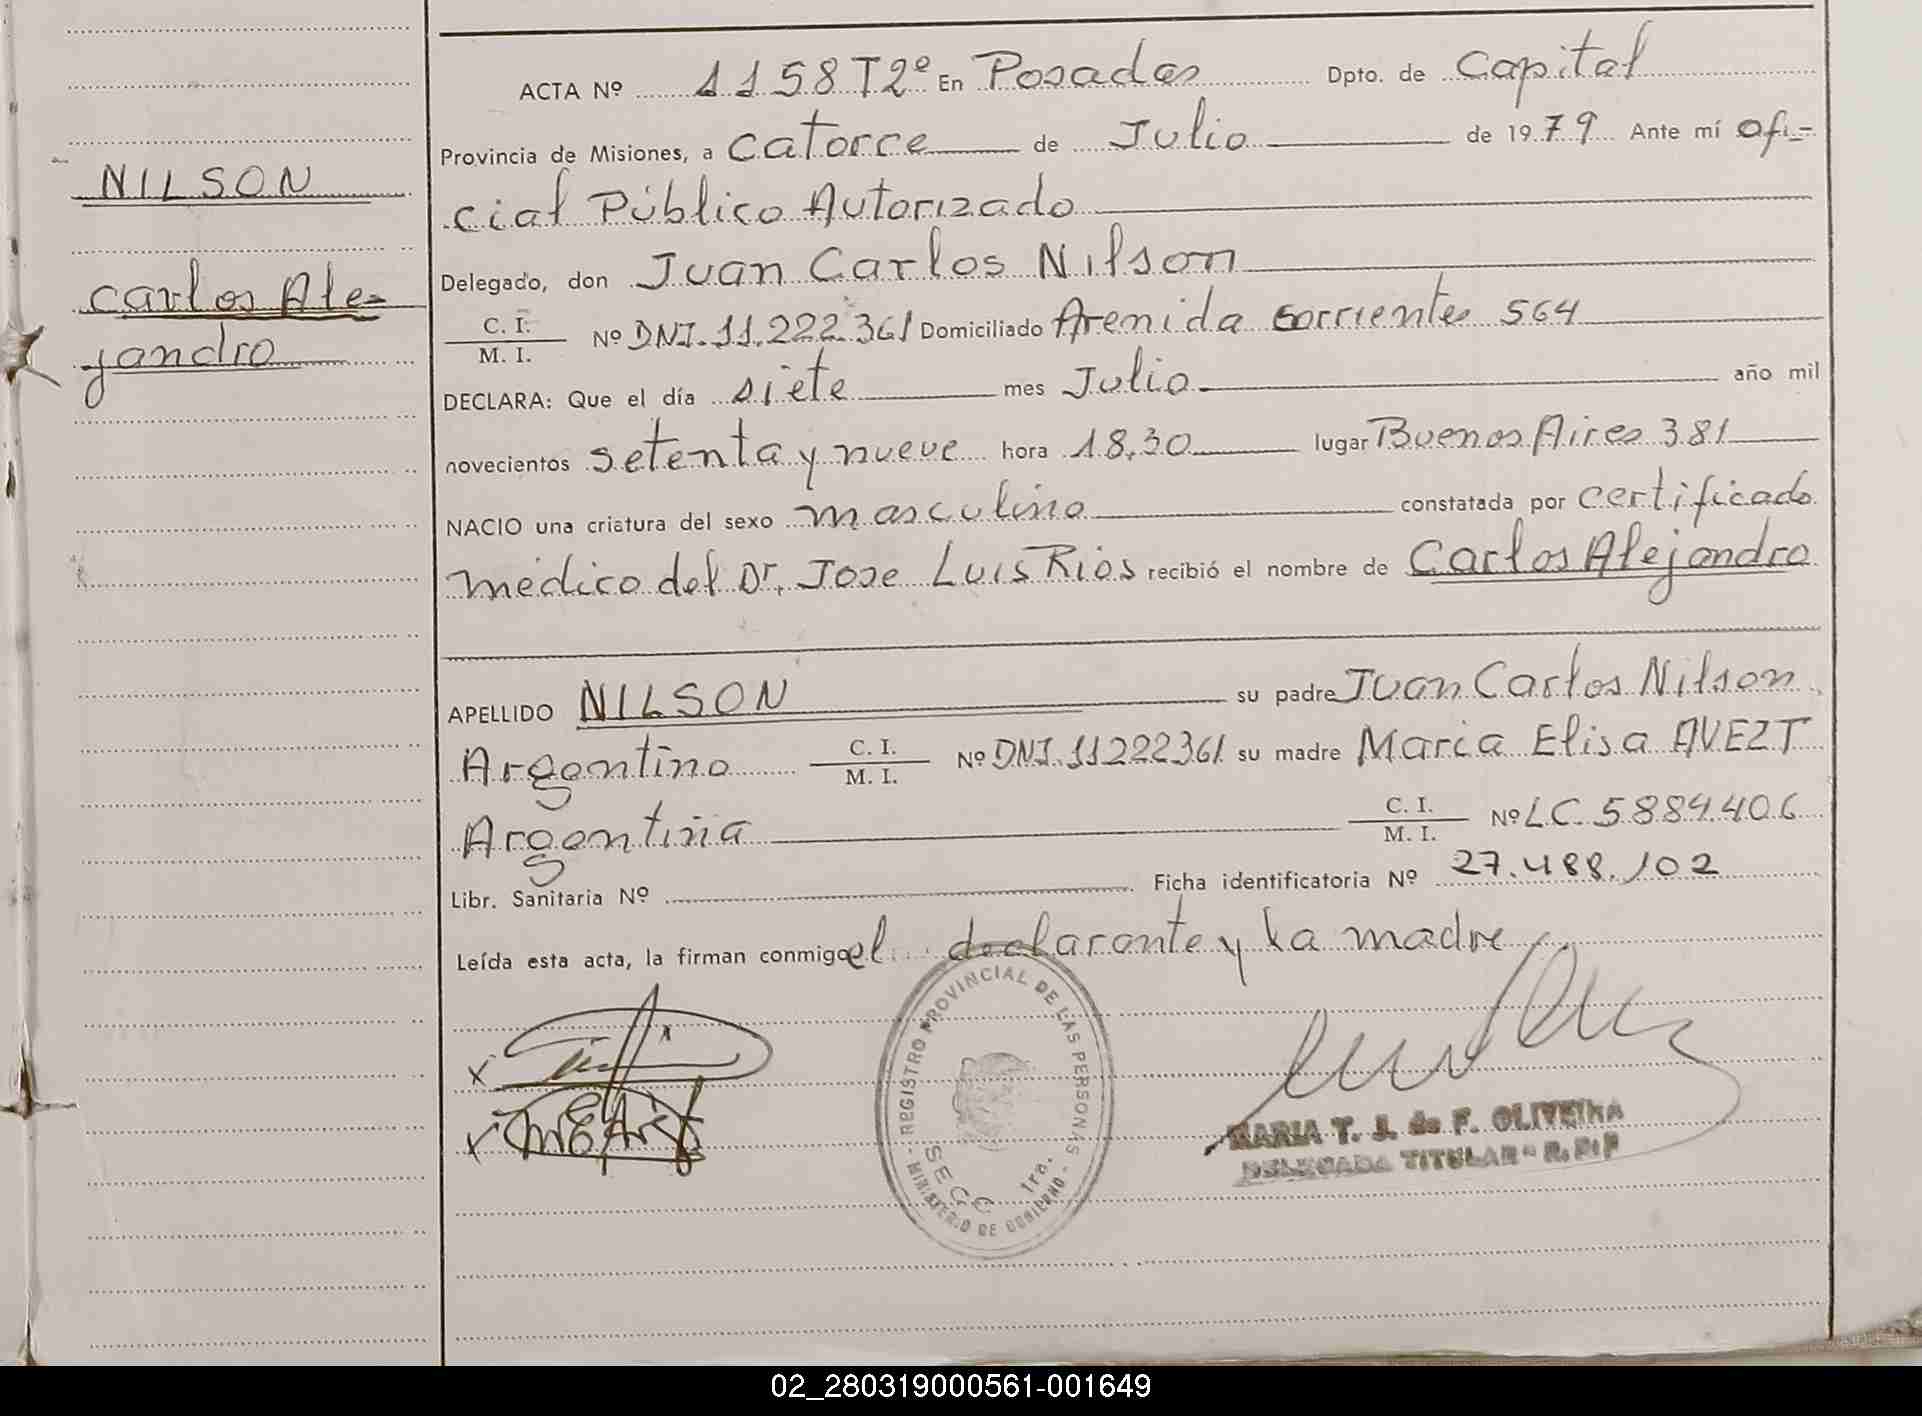 NILSON
Carlos Ale-
jandro
ACTA Nº 1158 T2º En Posadas Dpto. de Capital
Provincia de Misiones, a catorce de Julio de 1979 Ante mí ofi-
cial Público Autorizado
Delegado, don Juan Carlos Nilson
C. I.
M. I. Nº DNI. 11.222.361 Domiciliado Avenida corrientes 564
DECLARA: Que el día siete mes Julio año mil
novecientos setenta y nueve hora 18,30 lugar Buenos Aires 381
NACIO una criatura del sexo masculino constatada por certificado
médico del Dr. Jose Luis Rios recibió el nombre de Carlos Alejandro
APELLIDO NILSON su padre Juan Carlos Nilson
Argentino C. I. M. I. Nº DNI. 11222361 su madre Maria Elisa AVEZT
Argentina C. I. M. I. Nº LC. 5884.406
Libr. Sanitaria Nº Ficha identificatoria Nº 27.488.102
Leída esta acta, la firman conmigo el declarante y la madre
REGISTRO PROVINCIAL DE LAS PERSONAS
MINISTERIO DE GOBIERNO
SECC 1ra.
MARIA T. J. de F. OLIVEIRA
DELEGADA TITULAR - R. P. P
02_280319000561-001649